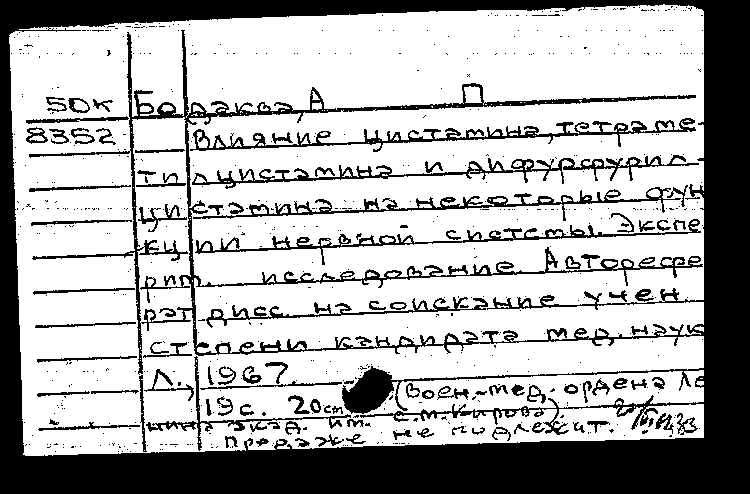 50К Бодаква, А П
8352 Влияние цистамина, тетраме-
тилцистамина и дифурфурил-
цистамина на некоторые фун
кции нервной системы. Экспе
рим. исследование. Авторефе
рат дисс. на соискание учен.
степени кандидата мед. наук
Л., 1967.
19с. 20cm (Воен.-мед. ордена Ле
нина акад. им. С.М.Кирова).
продаже не подлежит.